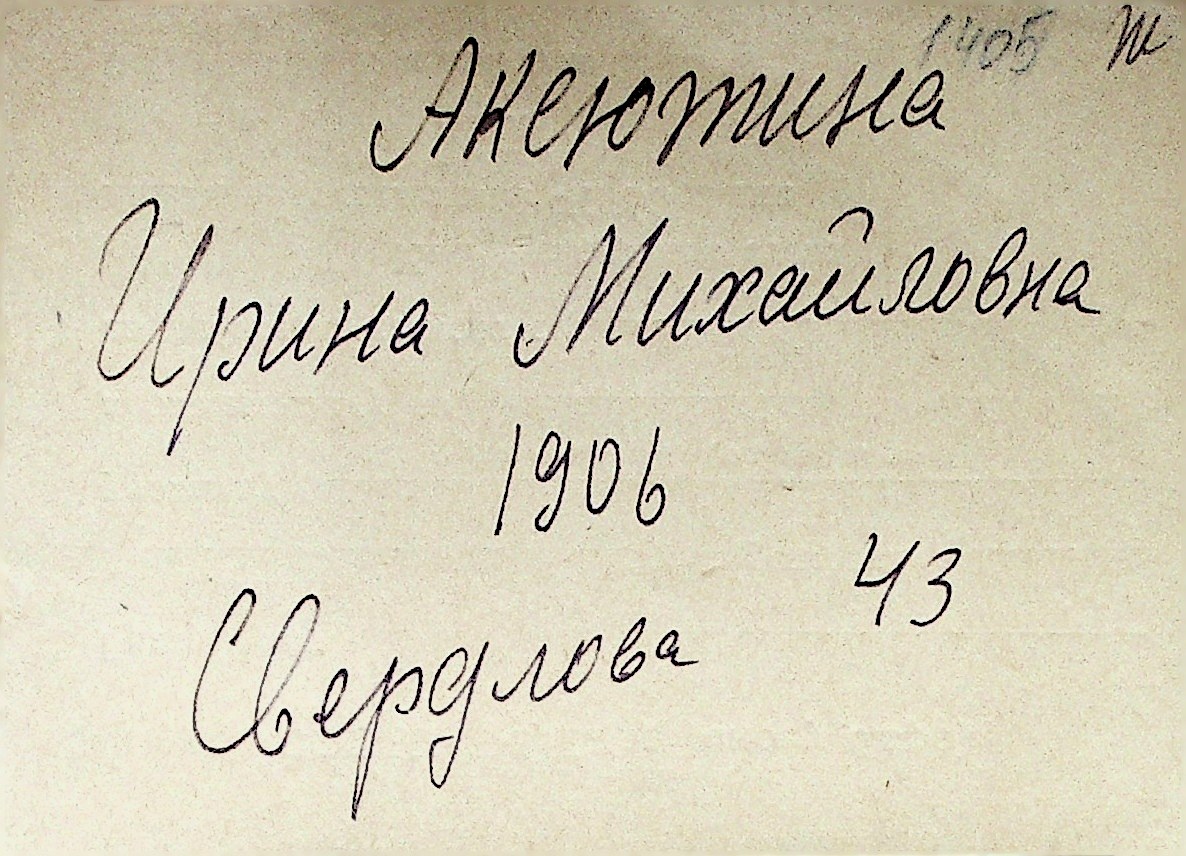 1405 Ж
Аксютина
Ирина Михайловна
1906
43
Свердлова